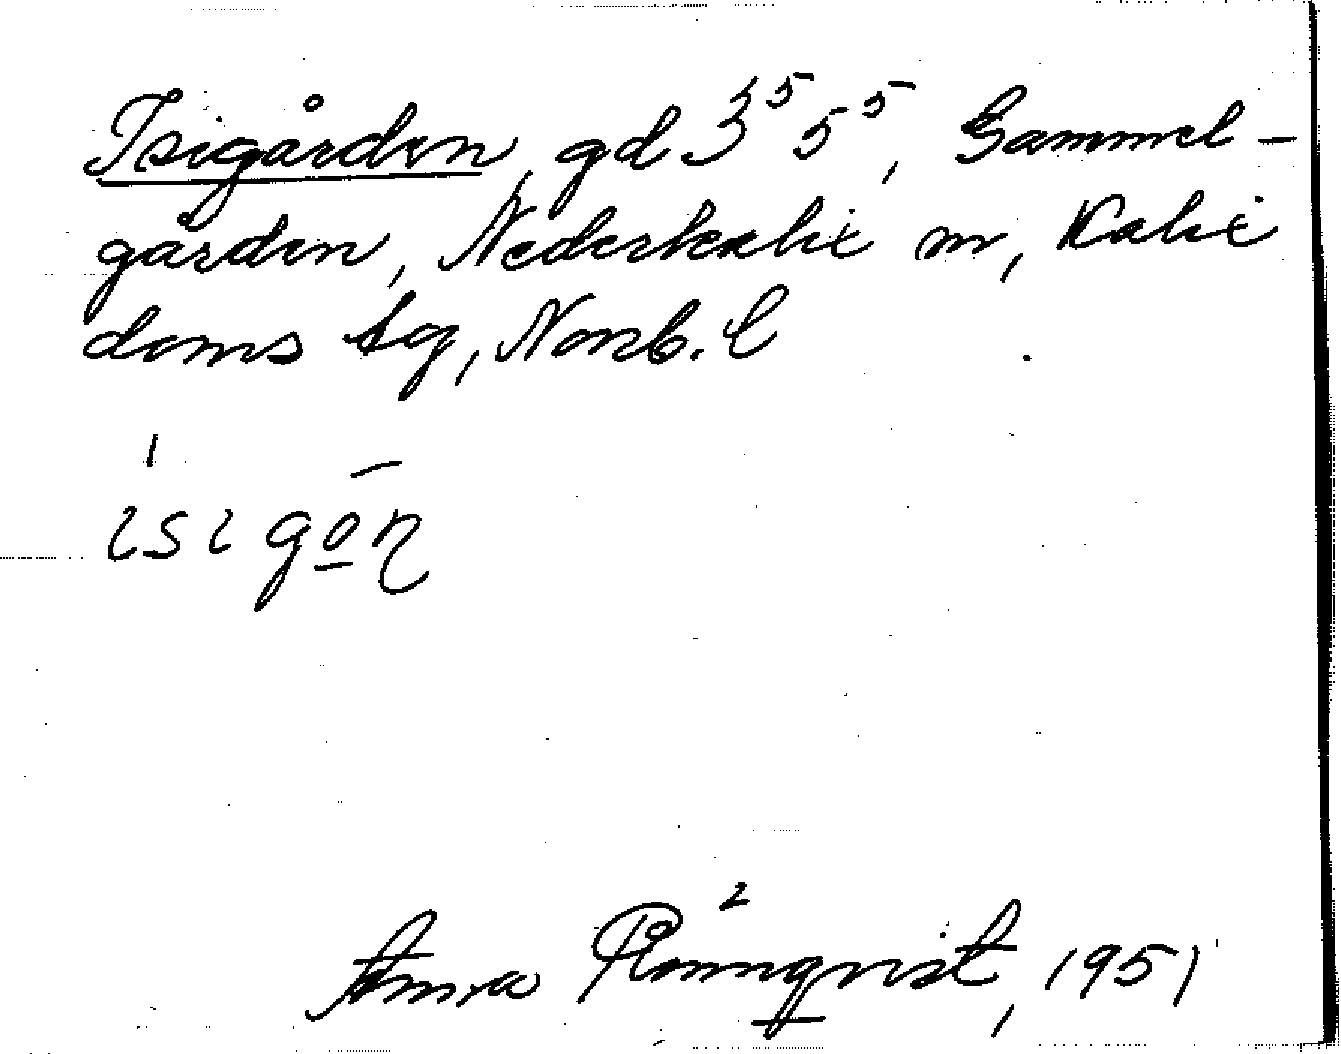 Isigården, gd 3⁵ 5⁵, Gammel-
gården, Nederkalix sn, Kalix
doms tg, Norrb. l
isigo̲n
Anna Rönnqvist, 1951